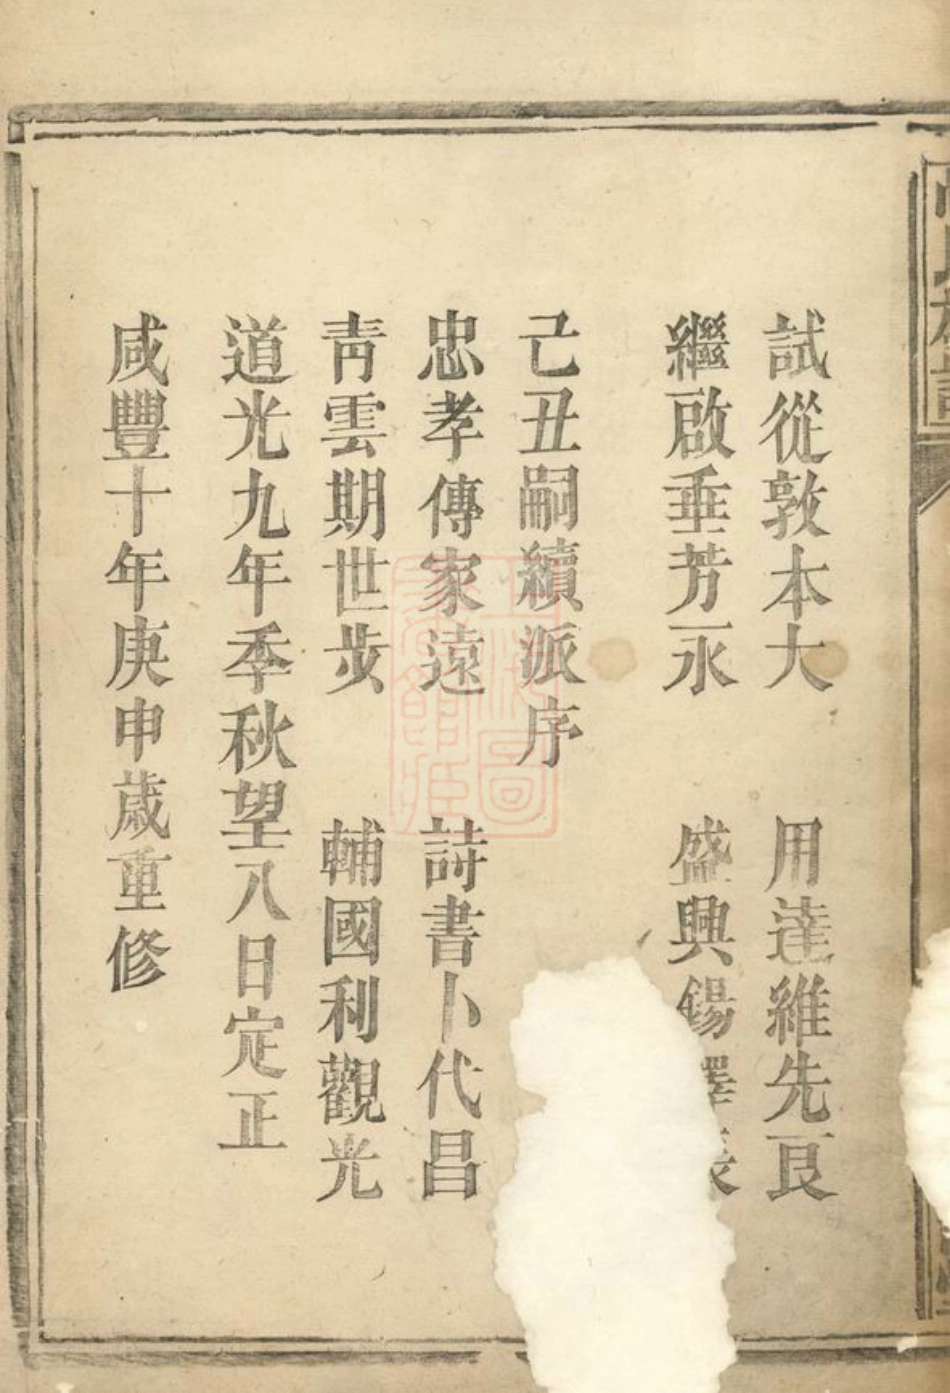 試從敦本大　用達維先良
繼啟垂芳永　盛興錫澤長
己丑嗣續派序
忠孝傳家遠　詩書卜代昌
靑雲期世步　輔國利觀光
道光九年季秋望八日定正
咸豐十年庚申歲重修